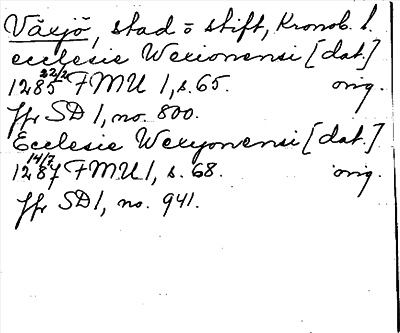 Växjö, stad o stift, Kronob. l.
ecclesie Wexionensi [dat.]
1285 22/2 FMU 1, s. 65. orig.
Jfr SD 1, no. 800.
Ecclesie Wexyonensi [dat.]
1287 14/7 FMU 1, s. 68. orig.
Jfr SD 1, no. 941.